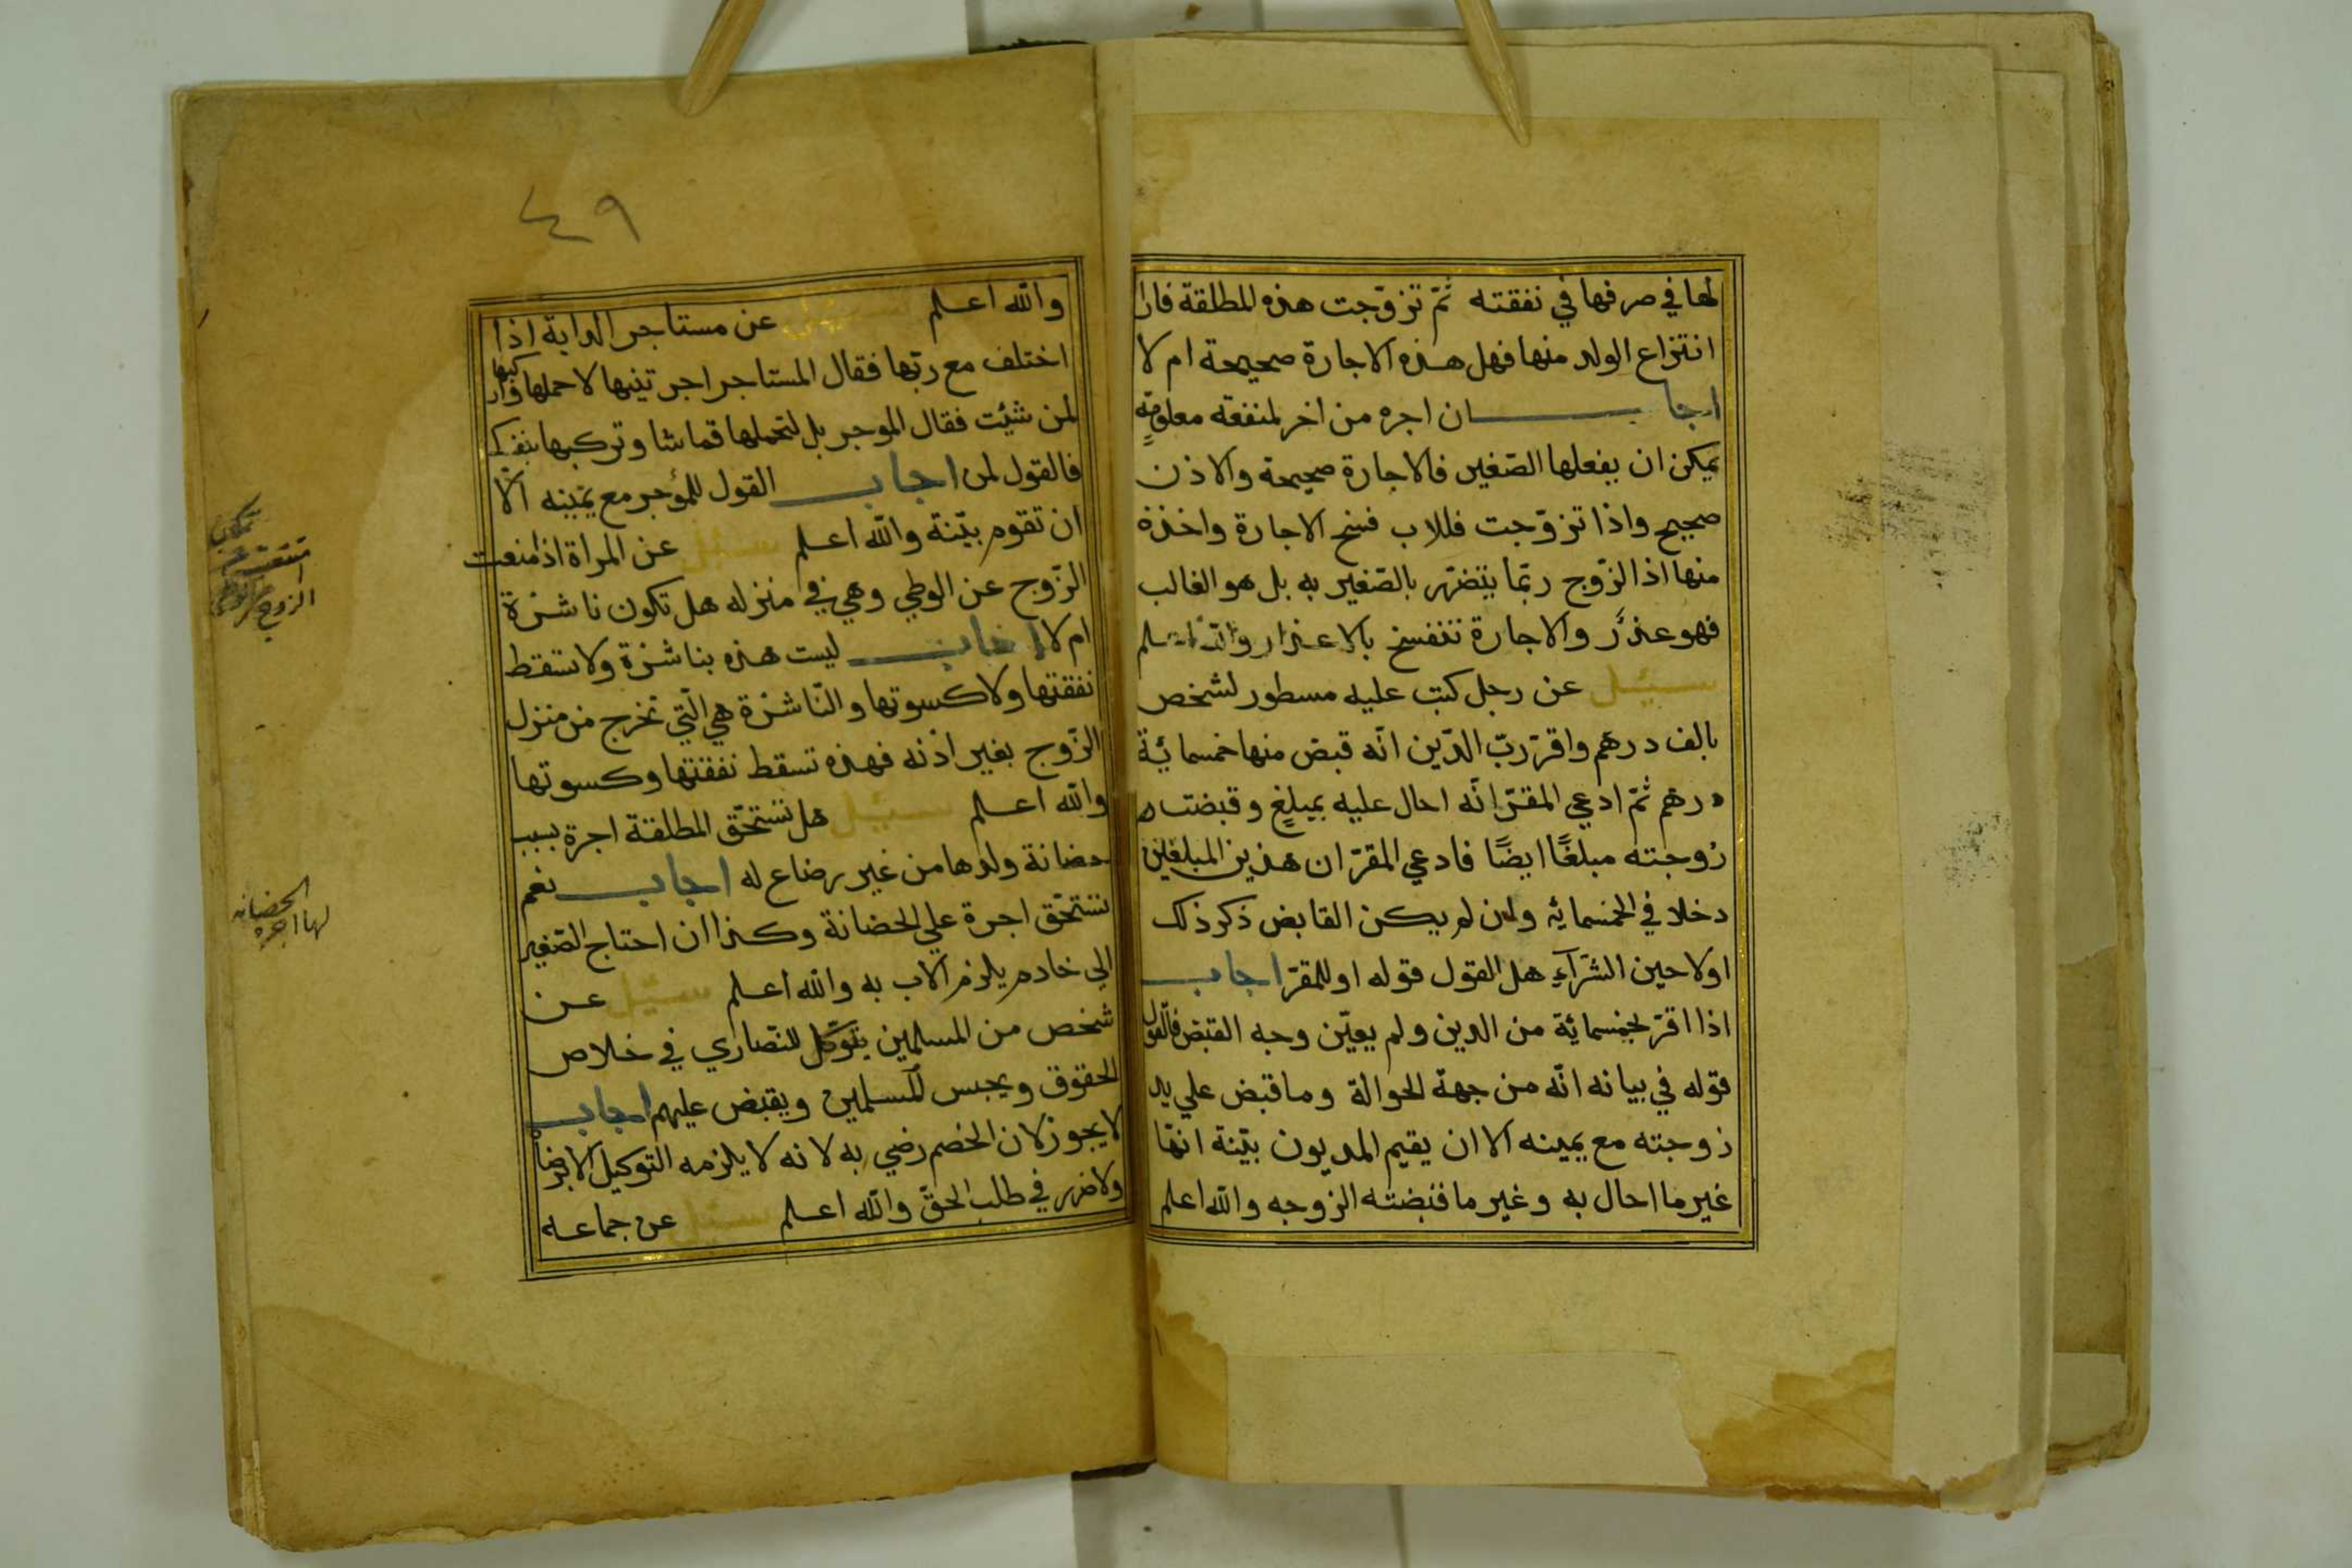 لها في صرفها في نفقته ثمّ تزوّجت هذه المطلقة فاراد
انتزاع الولد منها فهل هذه الاجارة صحيحة ام لا
اجاب ان اجره من اخر لمنفعة معلومةٍ
يمكن ان يفعلها الصّغير فالاجارة صحيحة والاذن
صحيح واذا تزوّجت فللاب فسخ الاجارة واخذه
منها اذ الزّوج ربّما يتضرّر بالصّغير به بل هو الغالب
فهو عذرٌ والاجارة تنفسخ بالاعذار والله اعلم
سيئل عن رجل كتب عليه مسطور لشخص
بالف درهم واقرّ ربّ الدّين انّه قبض منها خمسمائة
درهم ثمّ ادعي المقرّ انّه احال عليه بمبلغٍ وقبضت
زوجته مبلغًا ايضًا فادعي المقرّ ان هذين المبلغين
دخلا في الخمسمائه وان لم يكن القابض ذكر ذلك
اولا حين الشرآء هل القول قوله او للمقرّ اجاب
اذا اقرّ بخمسمائة من الدين ولم يعيّن وجه القبض فالقول
قوله في بيانه انّه من جهة الحوالة وما قبض علي يد
زوجته مع يمينه الا ان يقيم المديون بيّنة انها
غير ما احال به وغير ما قبضته الزوجه والله اعلم
٤٩
والله اعلم سيئل عن مستاجر الدابة اذا
اختلف مع ربّها فقال المستاجر اجرتنيها لاحملها واركبها
لمن شئت فقال الموجر بل لتحملها قماشا وتركبها بنفسك
فالقول لمن اجاب القول للمؤجر مع يمينه الّا
ان تقوم بيّنة والله اعلم سيئل عن المراة اذا منعت
الزّوج عن الوطي وهي في منزله هل تكون ناشزة
ام لا اجاب ليست هذه بناشزة ولا تسقط
نفقتها ولا كسوتها والنّاشزة هي الّتي تخرج من منزل
الزّوج بغير اذنه فهذه تسقط نفقتها وكسوتها
والله اعلم سيئل هل تستحّق المطلقة اجرة بسبب
حضانة ولدها من غير رضاع له اجاب نعم
تستحّق اجرة علي الحضانة وكذا ان احتاج الصّغير
الي خادم يلزم الاب به والله اعلم سيئل عن
شخص من المسلمين يتوكّل للنّصاري في خلاص
الحقوق ويحبس للمسلمين ويقبض عليهم اجاب
لا يجوز لان الخصم رضي به لانه لا يلزمه التوكيل الا برضاه
ولا ضرر في طلب الحقّ والله اعلم سيئل عن جماعه
الزوج
الحضانه
لها اجره